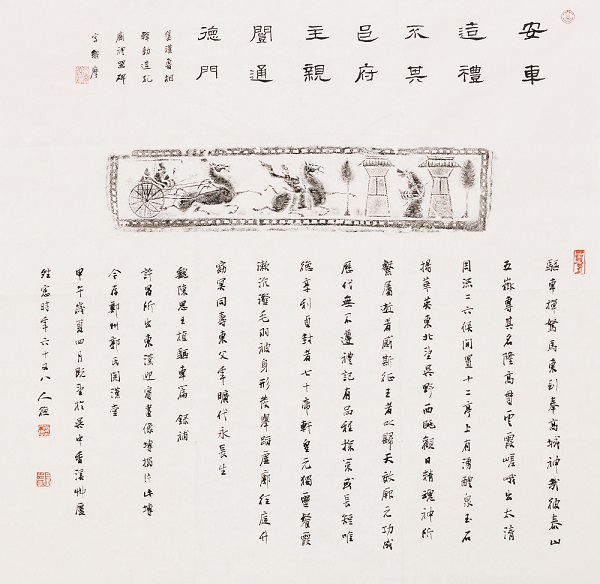 安車
造禮
不其
邑府
主親
闓通
德門
集漢魯相
韓勅造孔
廟禮器碑
字
驅車撣駑馬東到奉高城神哉彼泰山
五嶽專其名隆高貫雲霞嵯峨出太清
周流二六候間置十二亭上有湧醴泉玉石
揚華英東北望吳野西眺觀日精魂神所
繫屬逝者感斯征王者以歸天效厥元功成
歷代無不遵禮記有品程探策或長短唯
德享利貞封者七十帝軒皇元獨靈餐霞
漱沆瀣毛羽被身形發舉蹈虛廓徑庭升
窈冥同壽東父年曠代永長生
魏陳思王植驅車篇 錄補
許昌所出東漢迎賓畫像塼搨片此塼
今存鄭州郭氏閣漢堂
甲午歲夏四月既望於吳中香溪
時年六十又八